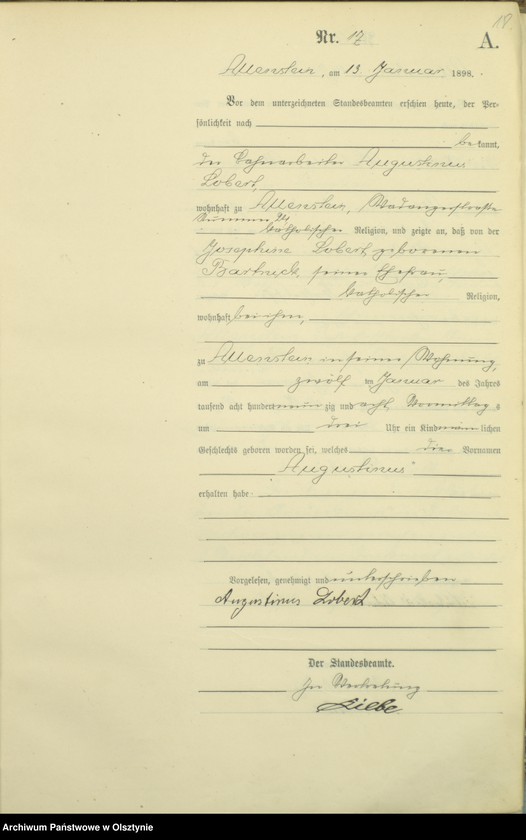 18.
Nr. 17
A.
Allenstein, am 13. Januar 1898.
Vor dem unterzeichneten Standesbeamten erschien heute, der Per-
sönlichkeit nach
bekannt,
der Bahnarbeiter Augustinus
Lobert,
wohnhaft zu Allenstein, Wadangerstraße
Nummer 24,
katholischer Religion, und zeigte an, daß von der
Josephine Lobert geborenen
seiner Ehefrau,
katholischer Religion,
wohnhaft bei ihm,
zu Allenstein in seiner Wohnung,
am zwölften Januar des Jahres
tausend acht hundert neunzig und acht, Vormittags
um drei Uhr ein Kind männlichen
Geschlechts geboren worden sei, welches die Vornamen
Augustinus
erhalten habe
Vorgelesen, genehmigt und unterschrieben
Augustinus Lobert
Der Standesbeamte.
In Vertretung
Archiwum Państwowe w Olsztynie